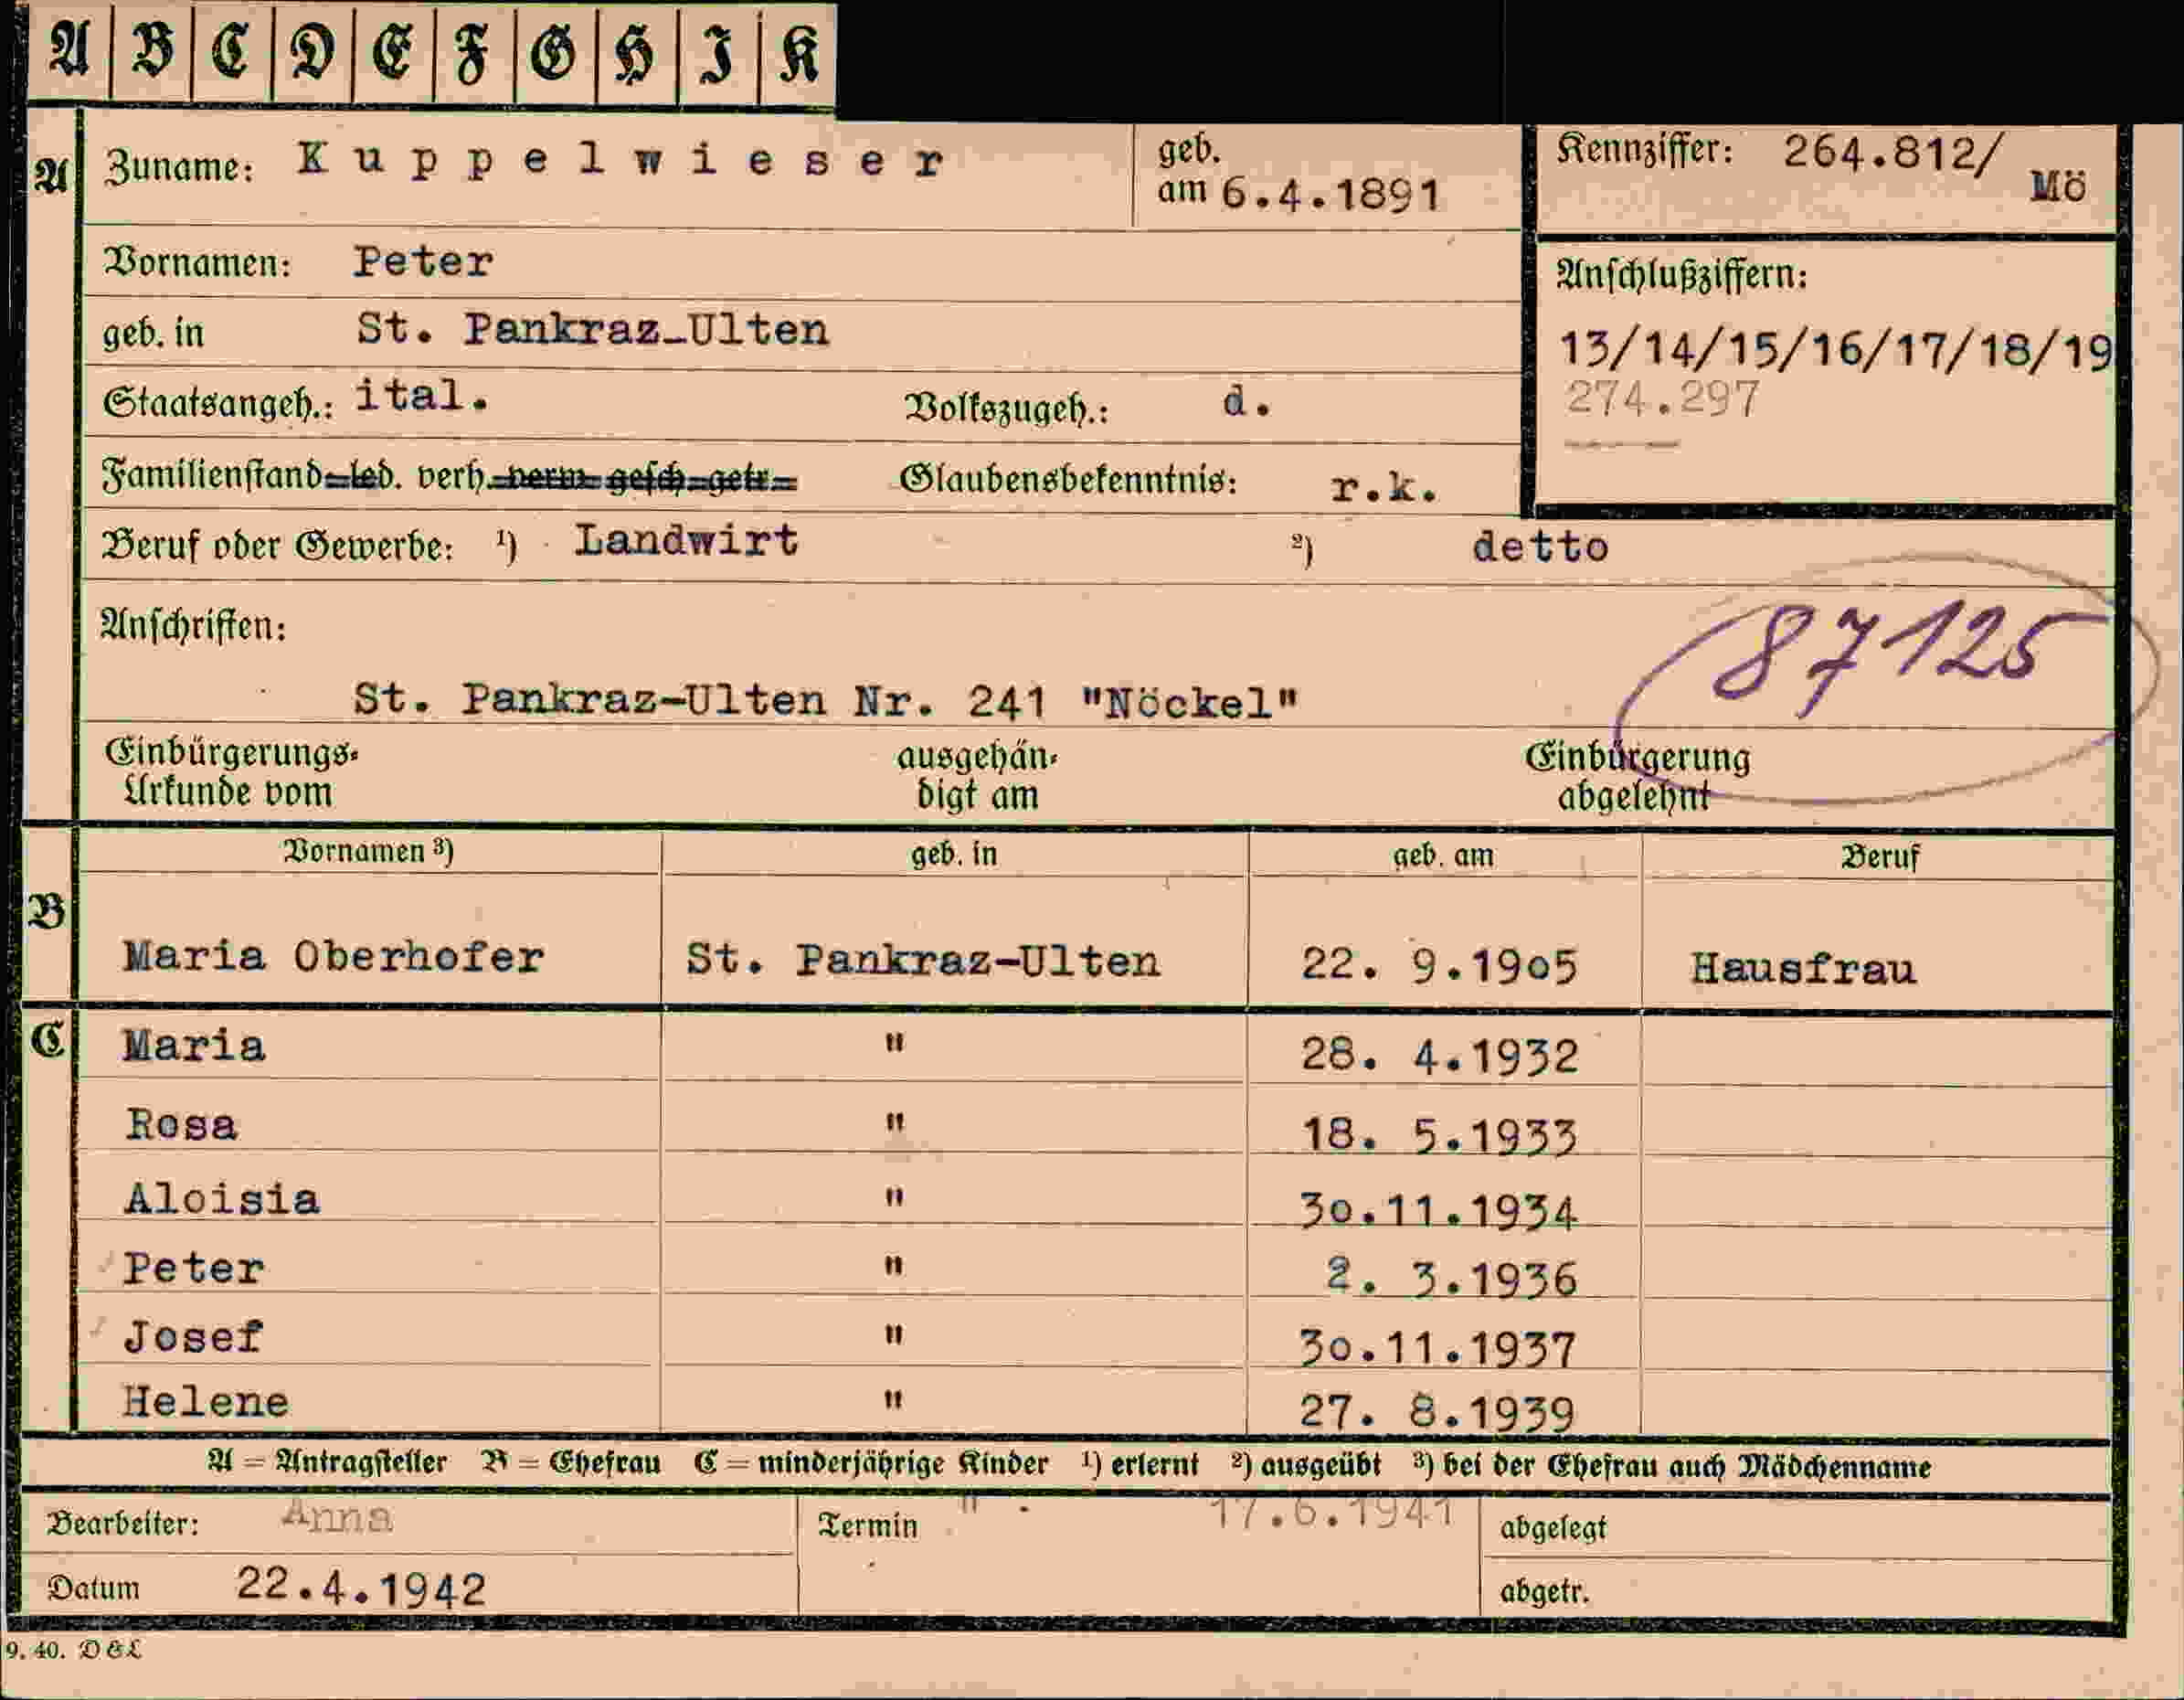 A B C D E F G H I K
A Zuname: Kuppelwieser geb. am 6.4.1891 Kennziffer: 264.812/ Mö
Vornamen: Peter
geb. in St. Pankraz-Ulten Anschlußziffern:
13/14/15/16/17/18/19
Staatsangeh.: ital. Volkszugeh.: d. 274.297
Familienstand led. verh. verw. gesch. getr. Glaubensbekenntnis: r.k.
Beruf oder Gewerbe: ¹) Landwirt ²) detto
Anschriften:
87125
St. Pankraz-Ulten Nr. 241 "Nöckel"
Einbürgerungs- Urkunde vom ausgehän- digt am Einbürgerung abgelehnt
Vornamen ³) geb. in geb. am Beruf
B
Maria Oberhofer St. Pankraz-Ulten 22. 9.1905 Hausfrau
C Maria " 28. 4.1932
Rosa " 18. 5.1933
Aloisia " 30.11.1934
Peter " 2. 3.1936
Josef " 30.11.1937
Helene " 27. 8.1939
A = Antragsteller B = Ehefrau C = minderjährige Kinder ¹) erlernt ²) ausgeübt ³) bei der Ehefrau auch Mädchenname
Bearbeiter: Anna Termin " 17.6.1941 abgelegt
Datum 22.4.1942 abgetr.
9. 40. D&L